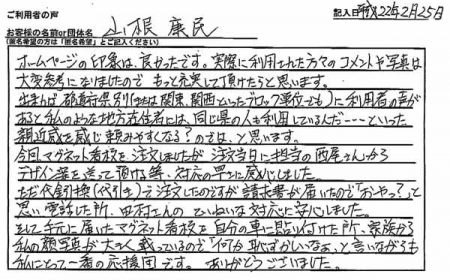 ご利用者の声
記入日 平成22年2月25日
お客様の名前or団体名
(匿名希望の方は「匿名希望」とご記入ください)
山根 康民
ホームページの印象は、良かったです。実際に利用された方々のコメントや写真は
大変参考になりましたので もっと充実して頂けたらと思います。
出来れば 都道府県別(または関東、関西といったブロック単位でも)に利用者の声が
あると私のような地方在住者には、同じ県の人も利用しているんだ---といった
親近感を感じ頼みやすくなる?のでは、と思います。
今回マグネット看板を注文しましたが注文当日に担当の西尾さんから
デザイン等を送って頂ける等、対応の早さに感心しました。
ただ代引換(代引き)で注文したのですが請求書が届いたので「おやっ?」と
思い電話した所、田村さんの ていねいな対応に安心しました。
そして手元に届いたマグネット看板を自分の車に貼り付けた所、家族から
私の顔写真が大きく載っているので「何か恥ずかしいなぁ」と言いながらも
私にとって一番の応援団です。 ありがとうございました。